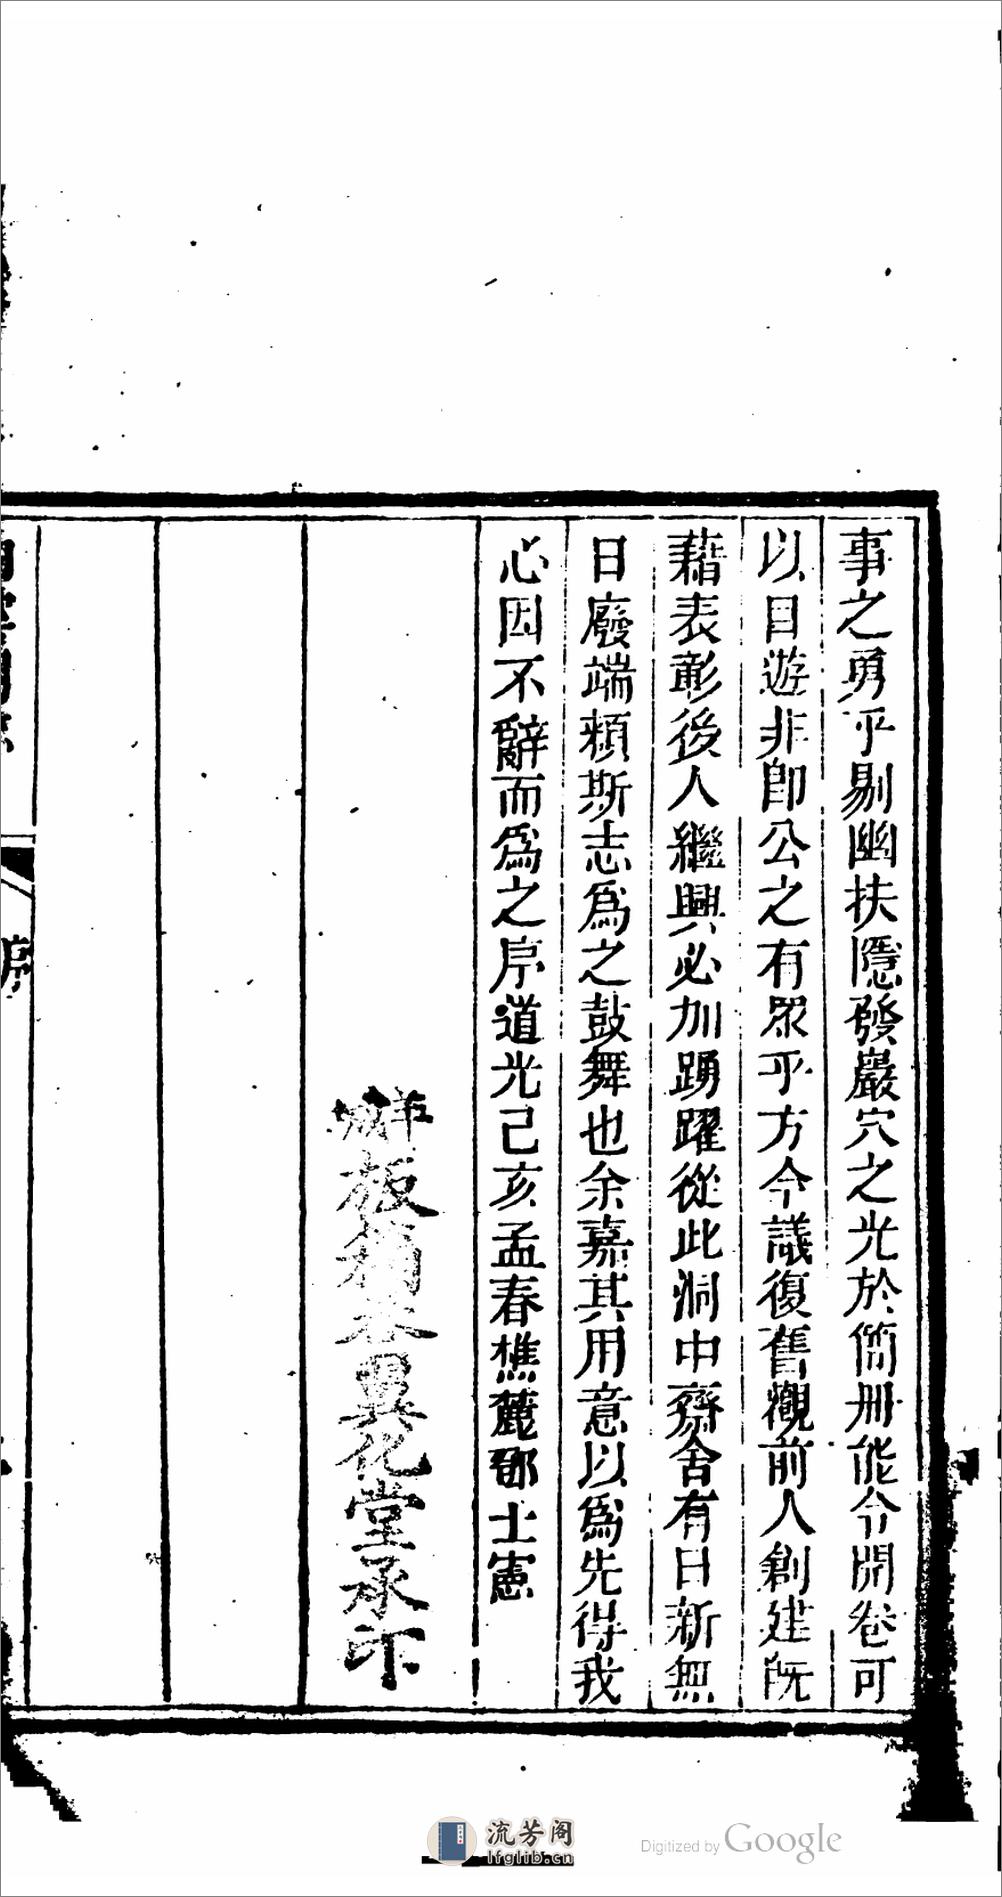 事之勇乎剔幽扶隱發巖穴之光於簡冊能令開卷可
以目遊非即公之有眾乎方今議復舊觀前人創建既
藉表彰後人繼興必加踴躍從此洞中齋舍有日新無
日廢端賴斯志為之鼓舞也余嘉其用意以為先得我
心因不辭而為之序道光己亥孟春樵麓鄧士憲
板 異化堂承印
序
流芳阁
lfglib.cn
Digitized by Google